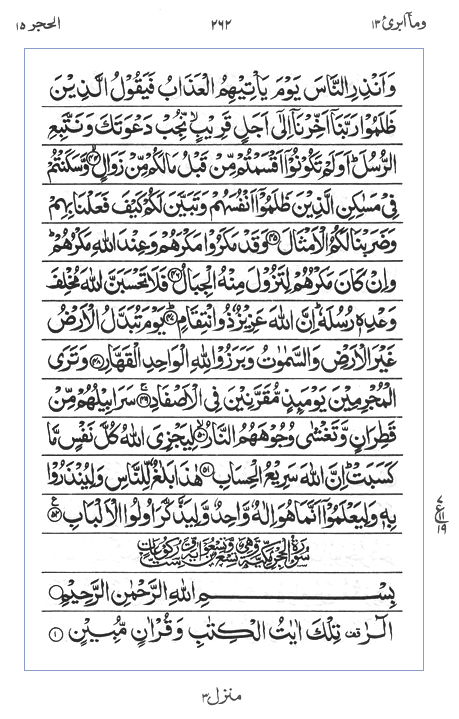 وما أبرئ ١٣
٢٦٢
الحجر ١٥
وَاَنْذِرِ النَّاسَ يَوْمَ يَاْتِيْهِمُ الْعَذَابُ فَيَقُوْلُ الَّذِيْنَ
ظَلَمُوْا رَبَّنَاۤ اَخِّرْنَاۤ اِلٰۤى اَجَلٍ قَرِيْبٍۙ نُّجِبْ دَعْوَتَكَ وَنَتَّبِعِ
الرُّسُلَ ؕ اَوَلَمْ تَكُوْنُوْۤا اَقْسَمْتُمْ مِّنْ قَبْلُ مَا لَكُمْ مِّنْ زَوَالٍ ۙ‏﴿۴۴﴾ وَّسَكَنْتُمْ
فِىْ مَسٰكِنِ الَّذِيْنَ ظَلَمُوْۤا اَنْفُسَهُمْ وَتَبَيَّنَ لَكُمْ كَيْفَ فَعَلْنَا بِهِمْ
وَضَرَبْنَا لَكُمُ الْاَمْثَالَ ﴿۴۵﴾ وَقَدْ مَكَرُوْا مَكْرَهُمْ وَعِنْدَ اللّٰهِ مَكْرُهُمْ ؕ
وَاِنْ كَانَ مَكْرُهُمْ لِتَزُوْلَ مِنْهُ الْجِبَالُ ﴿۴۶﴾ فَلَا تَحْسَبَنَّ اللّٰهَ مُخْلِفَ
وَعْدِهٖ رُسُلَهٗ ؕ اِنَّ اللّٰهَ عَزِيْزٌ ذُوْ انْتِقَامٍ ؕ‏﴿۴۷﴾ يَوْمَ تُبَدَّلُ الْاَرْضُ
غَيْرَ الْاَرْضِ وَالسَّمٰوٰتُ وَبَرَزُوْا لِلّٰهِ الْوَاحِدِ الْقَهَّارِ ﴿۴۸﴾ وَتَرَى
الْمُجْرِمِيْنَ يَوْمَئِذٍ مُّقَرَّنِيْنَ فِى الْاَصْفَادِ ۚ‏﴿۴۹﴾ سَرَابِيْلُهُمْ مِّنْ
قَطِرَانٍ وَّتَغْشٰى وُجُوْهَهُمُ النَّارُ ۙ‏﴿۵۰﴾ لِيَجْزِىَ اللّٰهُ كُلَّ نَفْسٍ مَّا
كَسَبَتْ ؕ اِنَّ اللّٰهَ سَرِيْعُ الْحِسَابِ ﴿۵۱﴾ هٰذَا بَلٰغٌ لِّلنَّاسِ وَلِيُنْذَرُوْا
بِهٖ وَلِيَعْلَمُوْۤا اَنَّمَا هُوَ اِلٰهٌ وَّاحِدٌ وَّلِيَذَّكَّرَ اُولُوا الْاَلْبَابِ ﴿۵۲﴾
ع
٧
١١
١٩
سورة الحجر مكية وهي تسع وتسعون آية وست ركوعات
بِسْمِ اللّٰهِ الرَّحْمٰنِ الرَّحِيْمِ
الٓرٰ تِلْكَ اٰيٰتُ الْكِتٰبِ وَقُرْاٰنٍ مُّبِيْنٍ ﴿۱﴾
منزل ٣